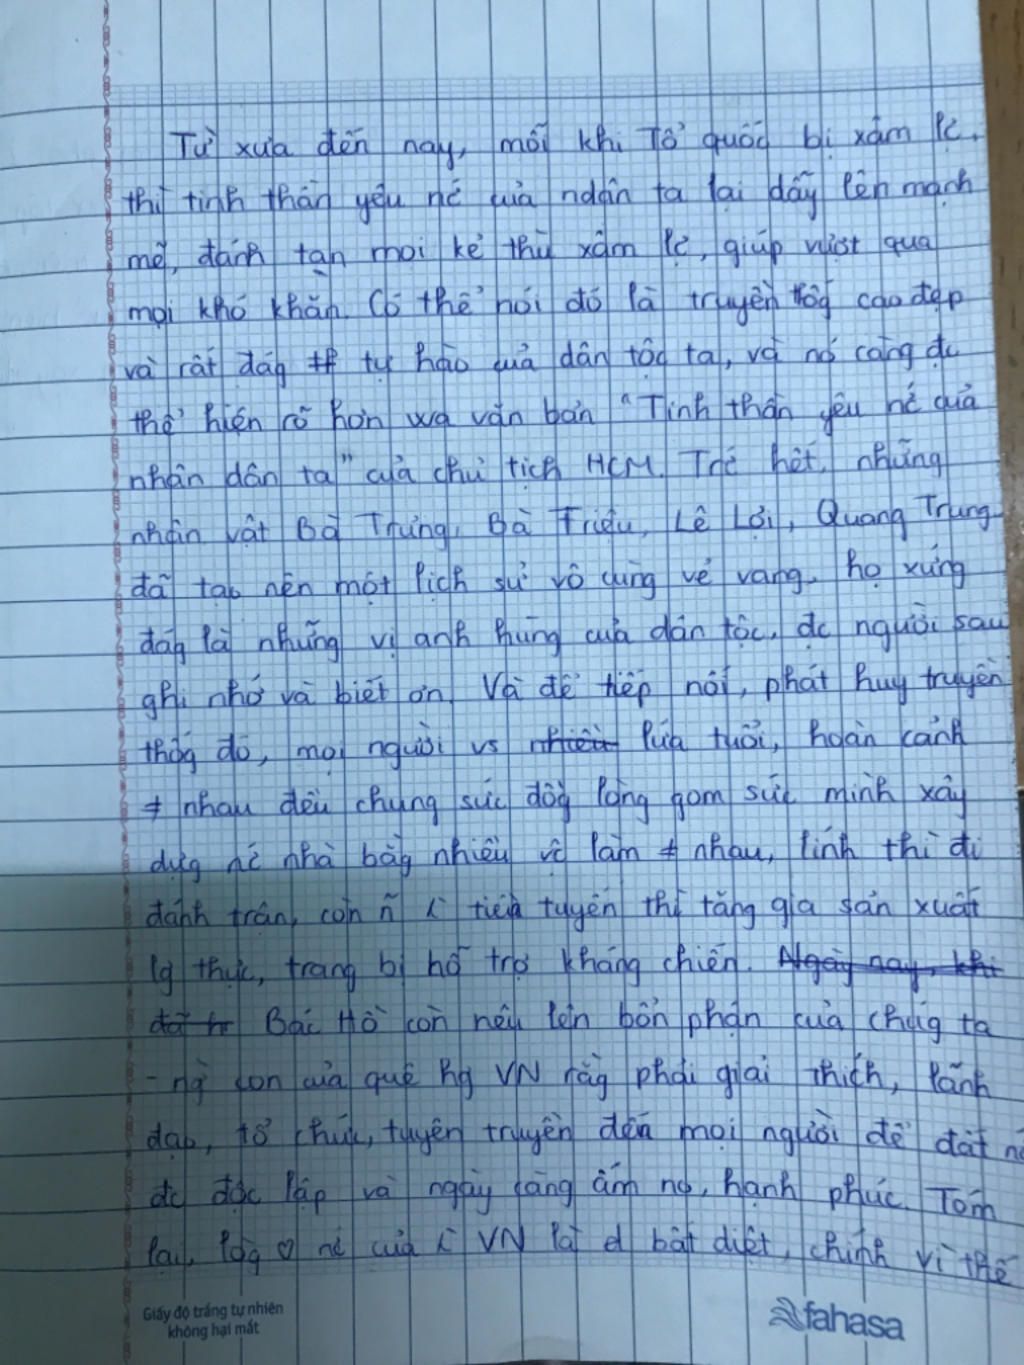 Từ xưa đến nay, mỗi khi Tổ quốc bị xâm lc,
thì tinh thần yêu nć của ndân ta lại dấy lên mạnh
mẽ, đánh tan mọi kẻ thù xâm lc, giúp vượt qua
mọi khó khăn. Có thể nói đó là truyền tốg cao đẹp
và rất đág tự hào của dân tộc ta, và nó càng đc
thể hiện rõ hơn wa văn bản "Tinh thần yêu nć của
nhân dân ta" của chủ tịch HCM. Trć hết, những
nhân vật Bà Trưng, Bà Triệu, Lê Lợi, Quang Trung
đã tạo nên một lịch sử vô cùng vẻ vang, họ xứng
đág là những vị anh hùng của dân tộc, đc người sau
ghi nhớ và biết ơn. Và để tiếp nối, phát huy truyền
thốg đó, mọi người vs lứa tuổi, hoàn cảnh
≠ nhau đều chung sức đồg lòng gom sức mình xây
dựg nć nhà bằg nhiều vc làm ≠ nhau, lính thì đi
đánh trận, còn ~ñ tiền tuyến thì tăng gia sản xuất
lg thực, trang bị hỗ trợ kháng chiến.
Bác Hồ còn nêu lên bổn phận của chúg ta
- ng` con của quê hg VN rằg phải giải thích, lãnh
đạo, tổ chức, tuyên truyền đến mọi người để đất nć
đc độc lập và ngày càng ấm no, hạnh phúc. Tóm
lại, lòg ♡ nć của VN là bất diệt, chính vì thế
Giấy độ trắng tự nhiên
không hại mắt
fahasa